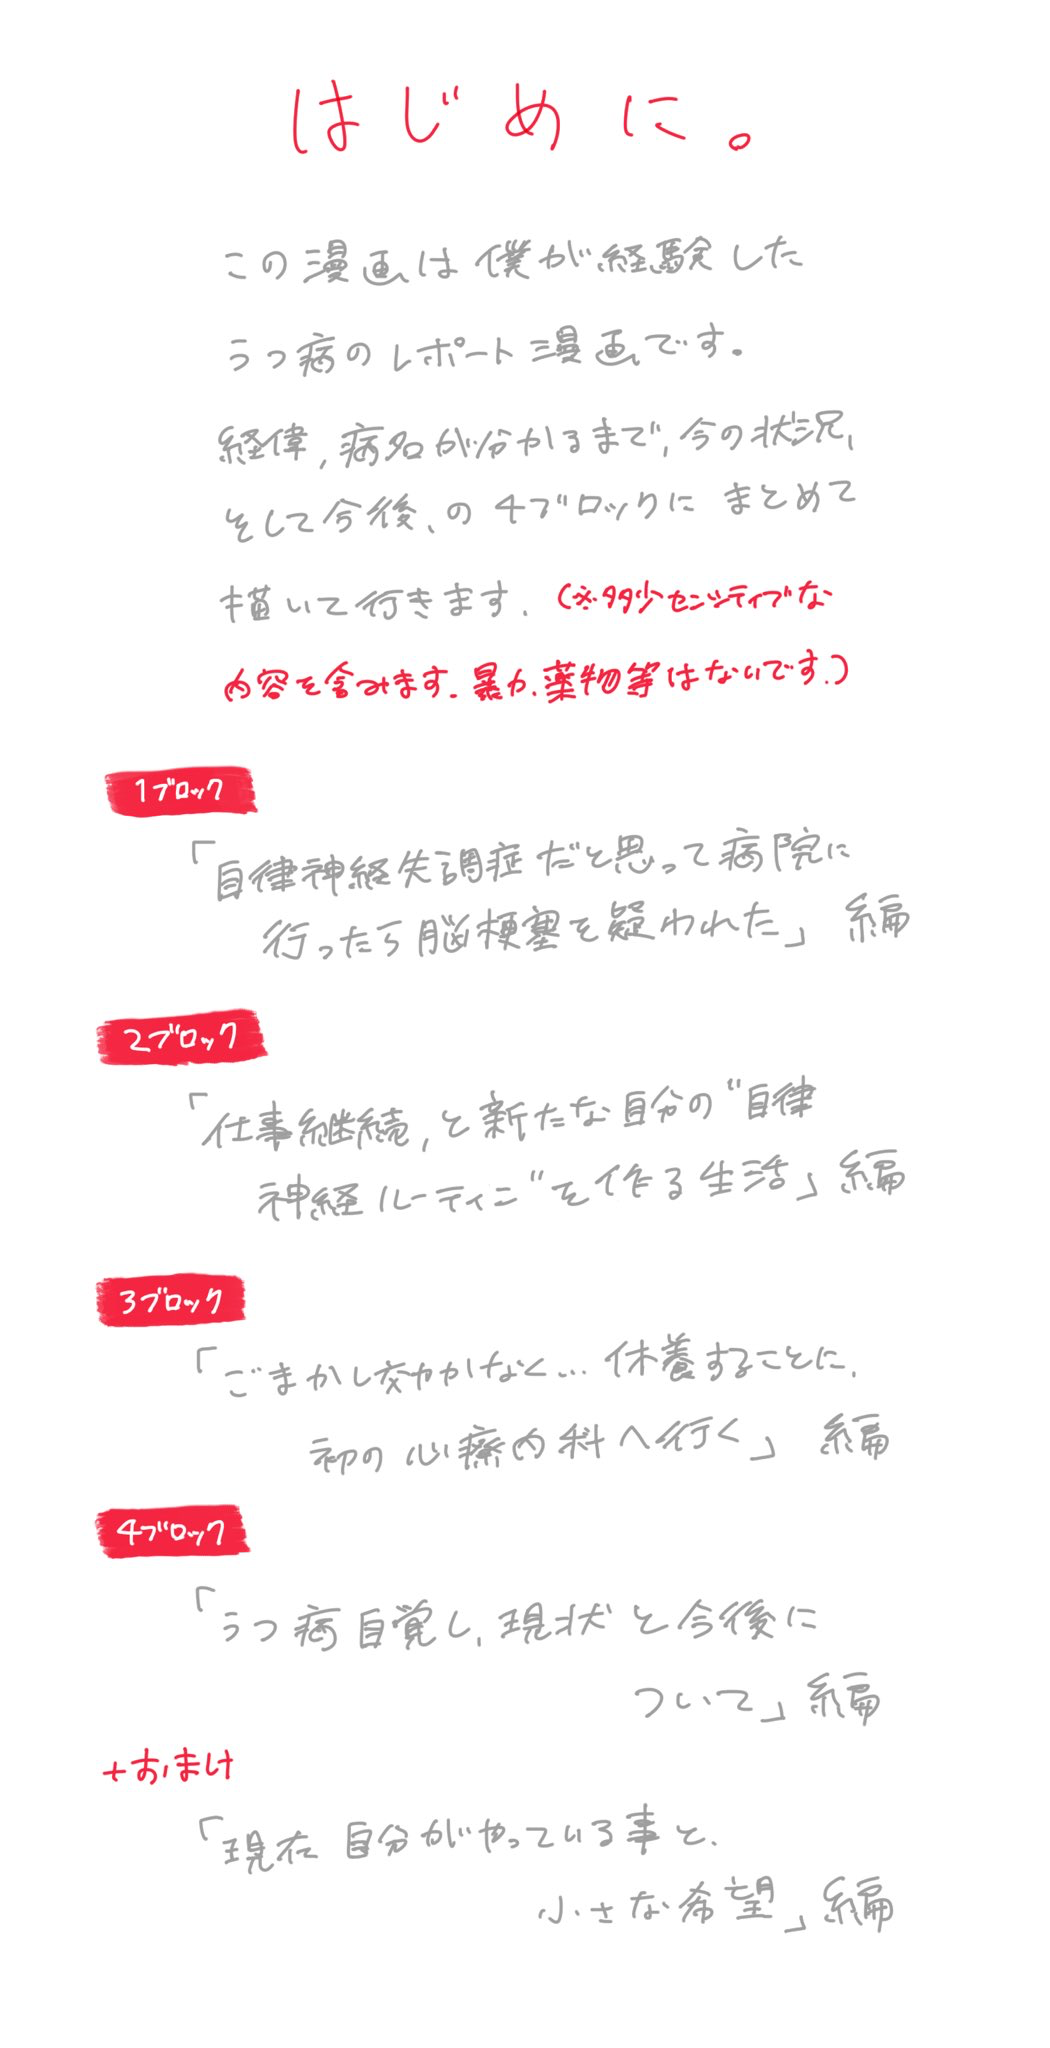 はじめに。
この漫画は僕が経験した
うつ病のレポート漫画です。
経緯,病名が分かるまで,今の状況、
そして今後、の4ブロックにまとめて
描いて行きます.(※多少センシティブな
内容を含みます.暴力、薬物等はないです.)
1ブロック
「自律神経失調症だと思って病院に
行ったら脳梗塞を疑われた」編
2ブロック
「仕事継続,と新たな自分の"自律
神経ルーティン"を作る生活」編
3ブロック
「ごまかし効かなく...休養することに、
初の心療内科へ行く」編
4ブロック
「うつ病自覚し、現状と今後に
ついて」編
+おまけ
「現在自分がやっている事と、
小さな希望」編